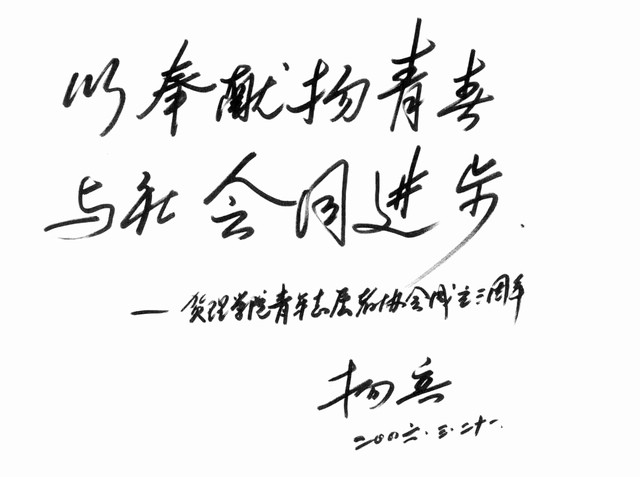 以奉献扬青春
与社会同进步.
— 管理学院青年志愿者协会成立三周年
杨兵
二〇〇六.三.二十一.